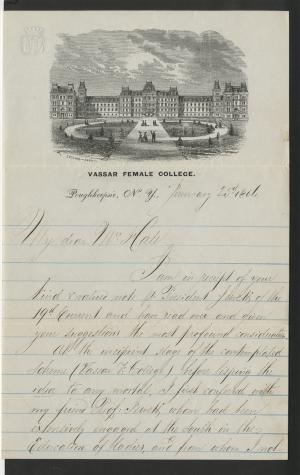 VASSAR FEMALE COLLEGE.
Poughkeepsie, N. Y., January 23rd 1866
My dear Mrs Hale
I am in receipt of your
kind & native note to President Jewett of the
19th Current and have read over and given
your suggestions the most profound consideration
At the incipient stage of the contemplated
scheme (Vassar F. College) before lisping the
idea to any mortal, I first conferred with
my friend Prof. Jewett, whom had been
extensively engaged at the South in the
Education of Ladies, and from whom I not